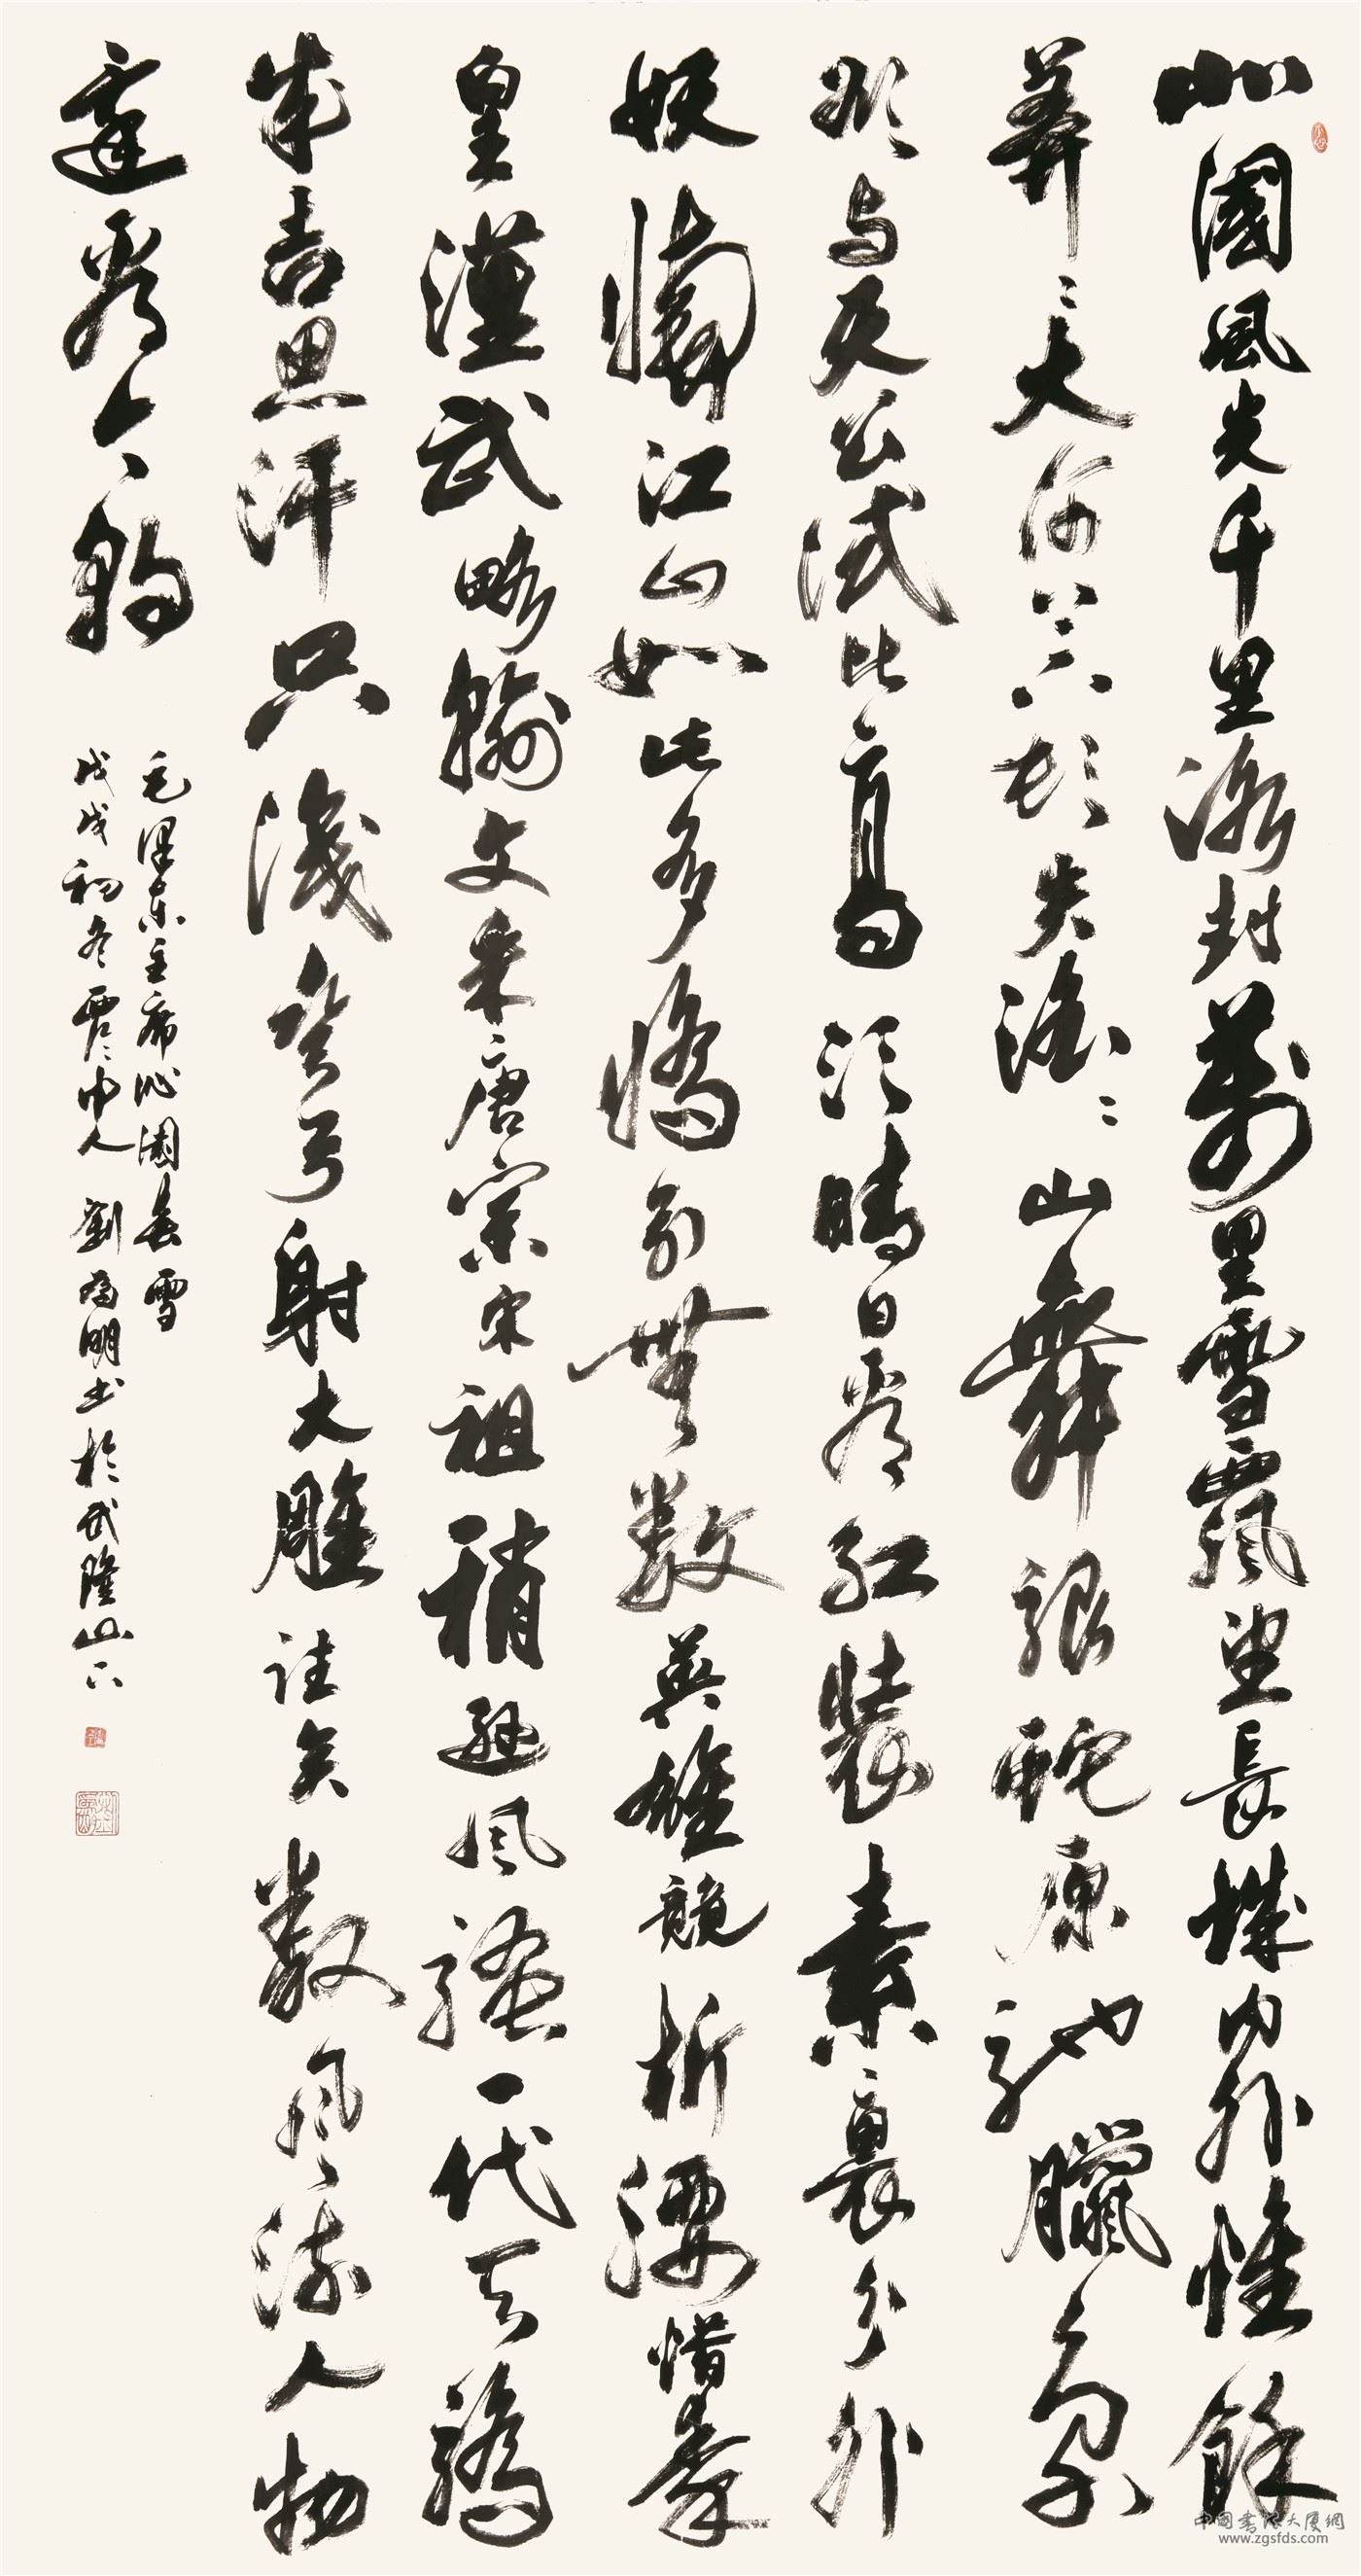 北國風光千里冰封萬里雪飄望長城內外惟餘
莽莽大河上下頓失滔滔山舞銀蛇原馳臘象
欲与天公試比高須晴日看紅裝素裹分外
妖嬈江山如此多嬌引無數英雄競折腰惜秦
皇漢武略輸文采唐宗宋祖稍遜風騷一代天驕
成吉思汗只識彎弓射大雕往矣數風流人物
還看今朝
毛澤東主席沁園春雪
戊戌初冬中人劉明书於武隆山下
中國書法大廈網
www.zgsfds.com